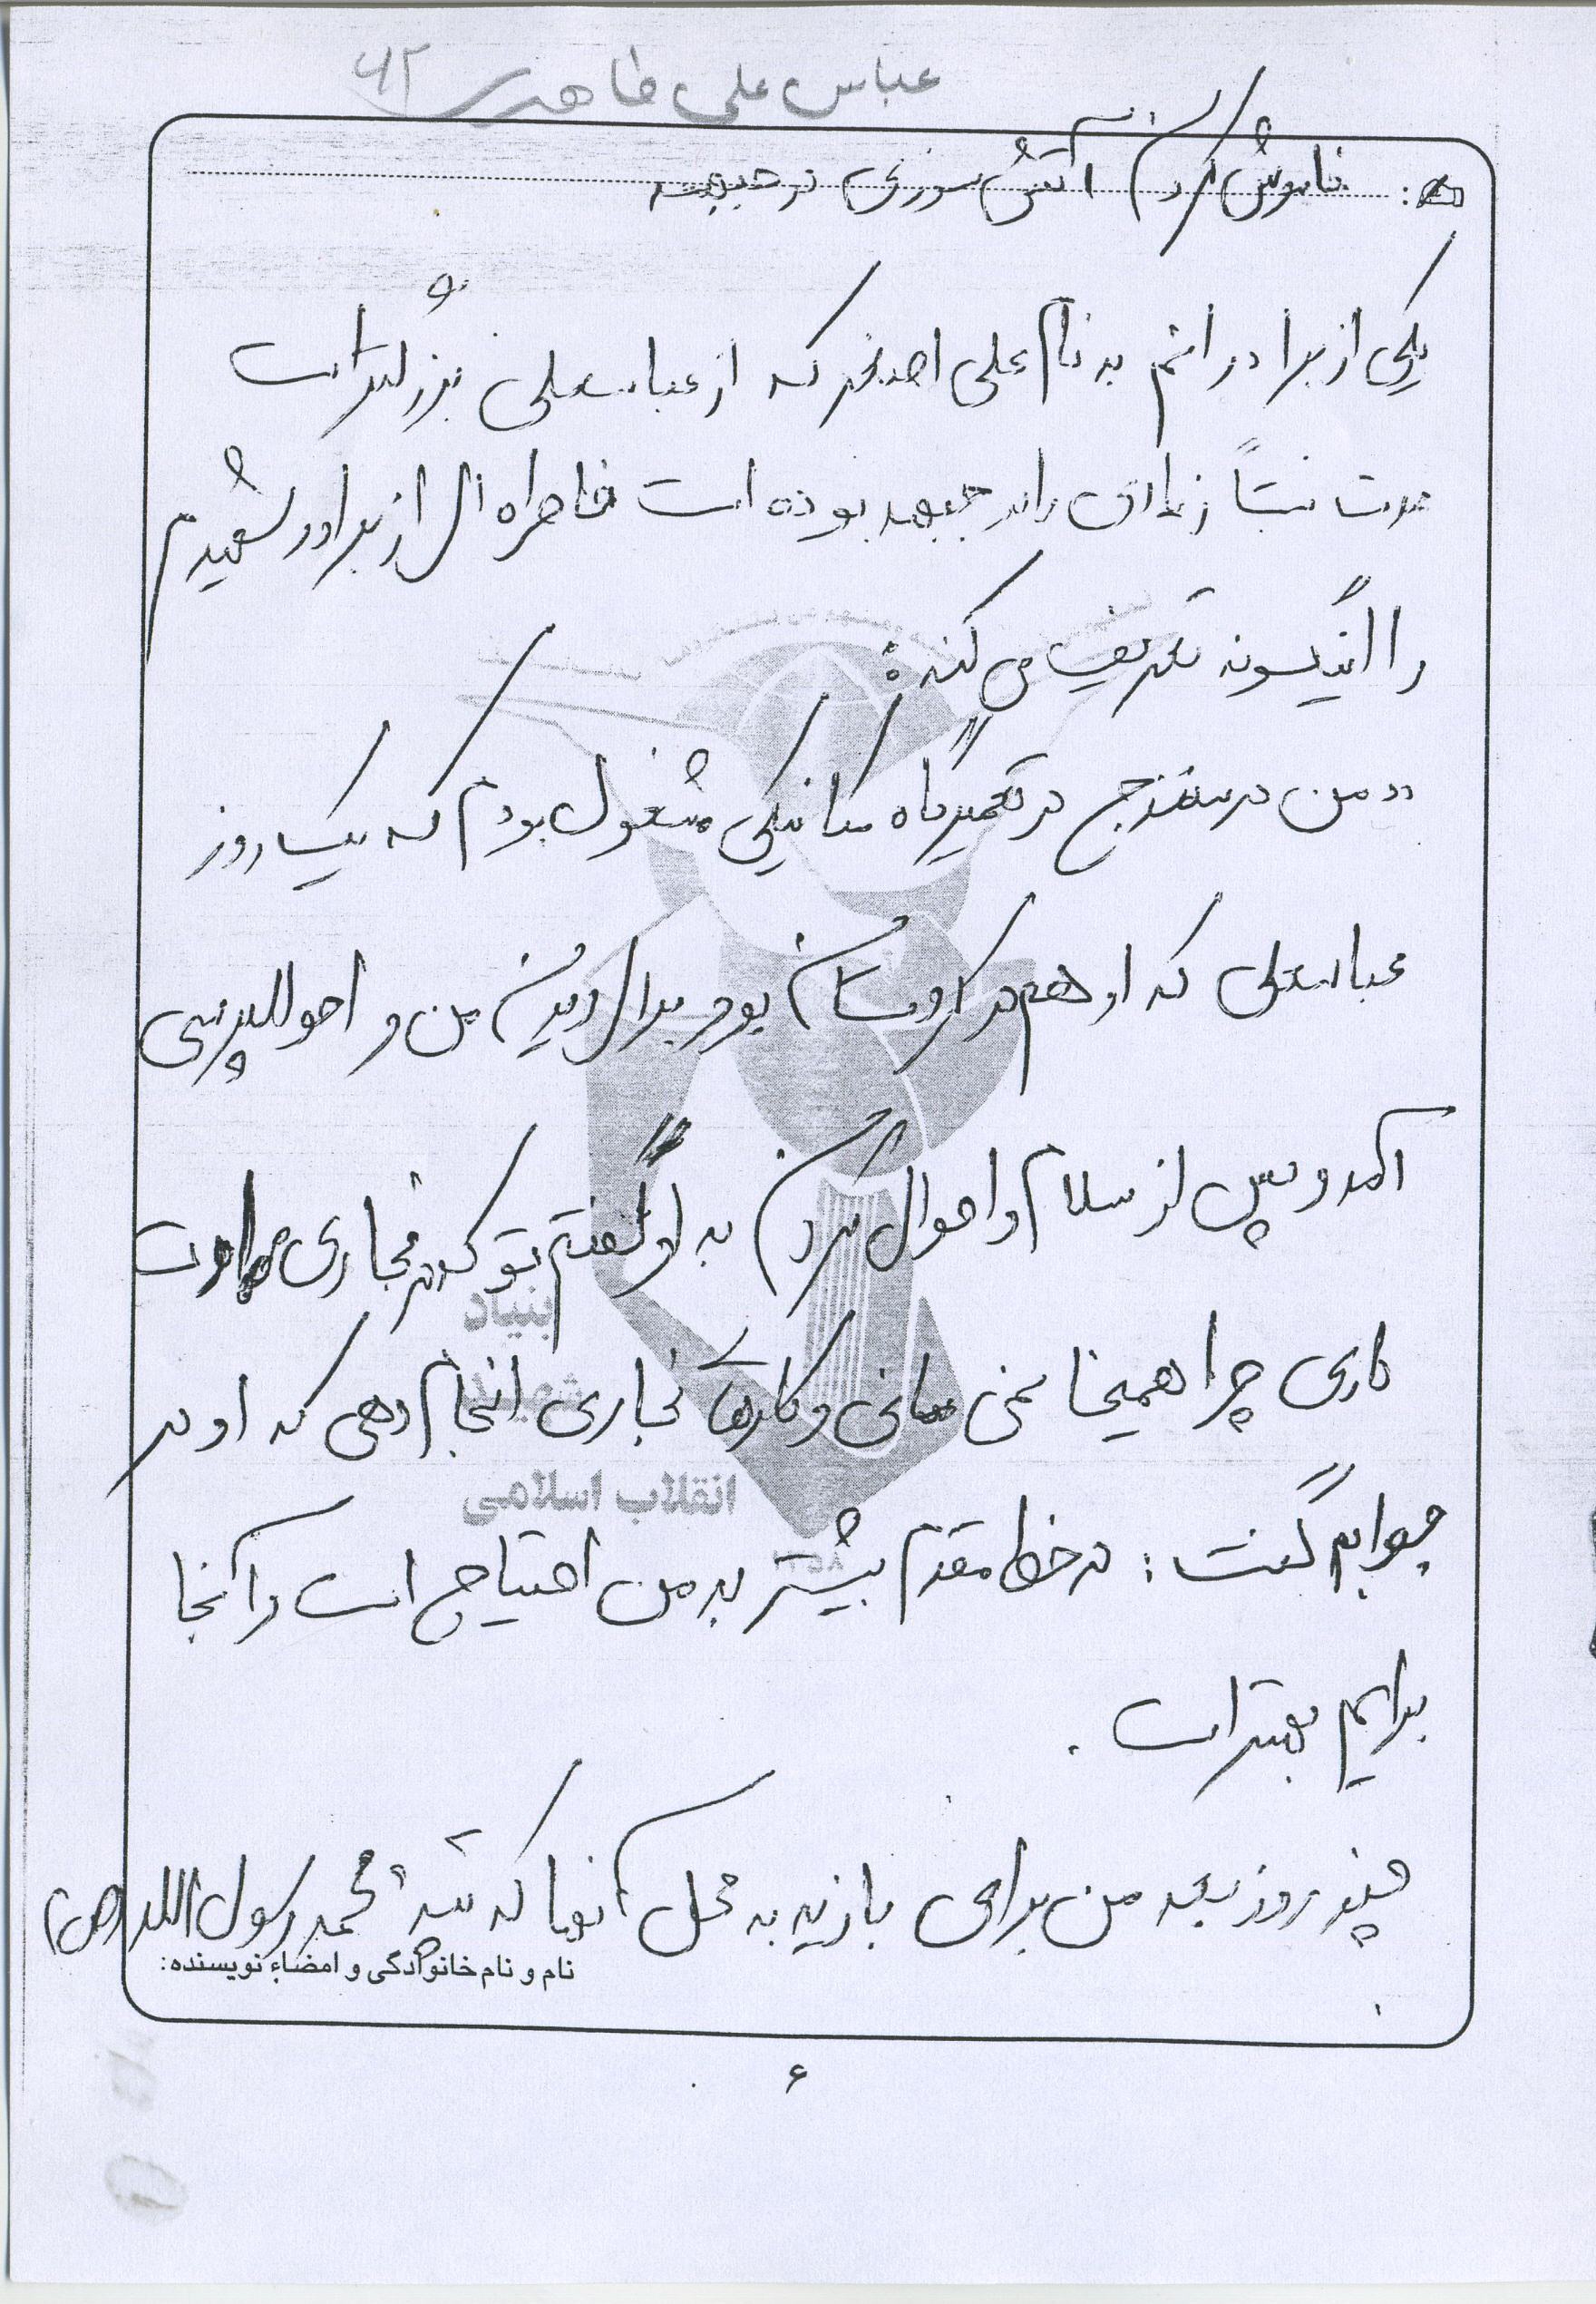 عباس علی طاهری ۶۲
خاموش کردن آتش سوزی در جبهه
یکی از برادرانم به نام علی اصغر که از عباسعلی بزرگتر است
مدت نسبتاً زیادی را در جبهه بوده است خاطره ای از برادر شهیدم
را اینگونه تعریف می کند:
"من در سنندج در تعمیرگاه مکانیکی مشغول بودم که یک روز
عباسعلی که او هم در کردستان بود برای دیدن من و احوالپرسی
آمد و پس از سلام و احوال کردن به او گفتم تو که در نجاری مهارت
داری چرا همینجا نمی مانی و کارهای نجاری انجام دهی که او در
جوابم گفت: در خط مقدم بیشتر به من احتیاج است و آنجا
برایم بهتر است.
چند روز بعد من برای بازدید به محل آنها که تیپ محمد رسول الله (ص)
نام و نام خانوادگی و امضاء نویسنده:
۶
بنیاد
انقلاب اسلامی